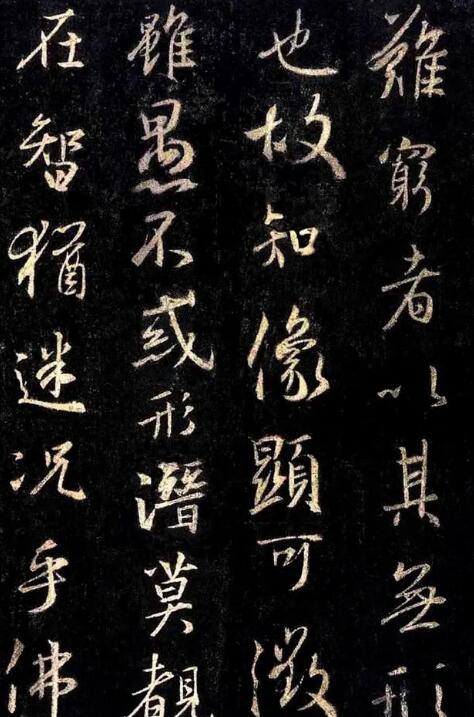 難窮者以其無形
也故知像顯可徵
雖愚不惑形潛莫覩
在智猶迷況乎佛